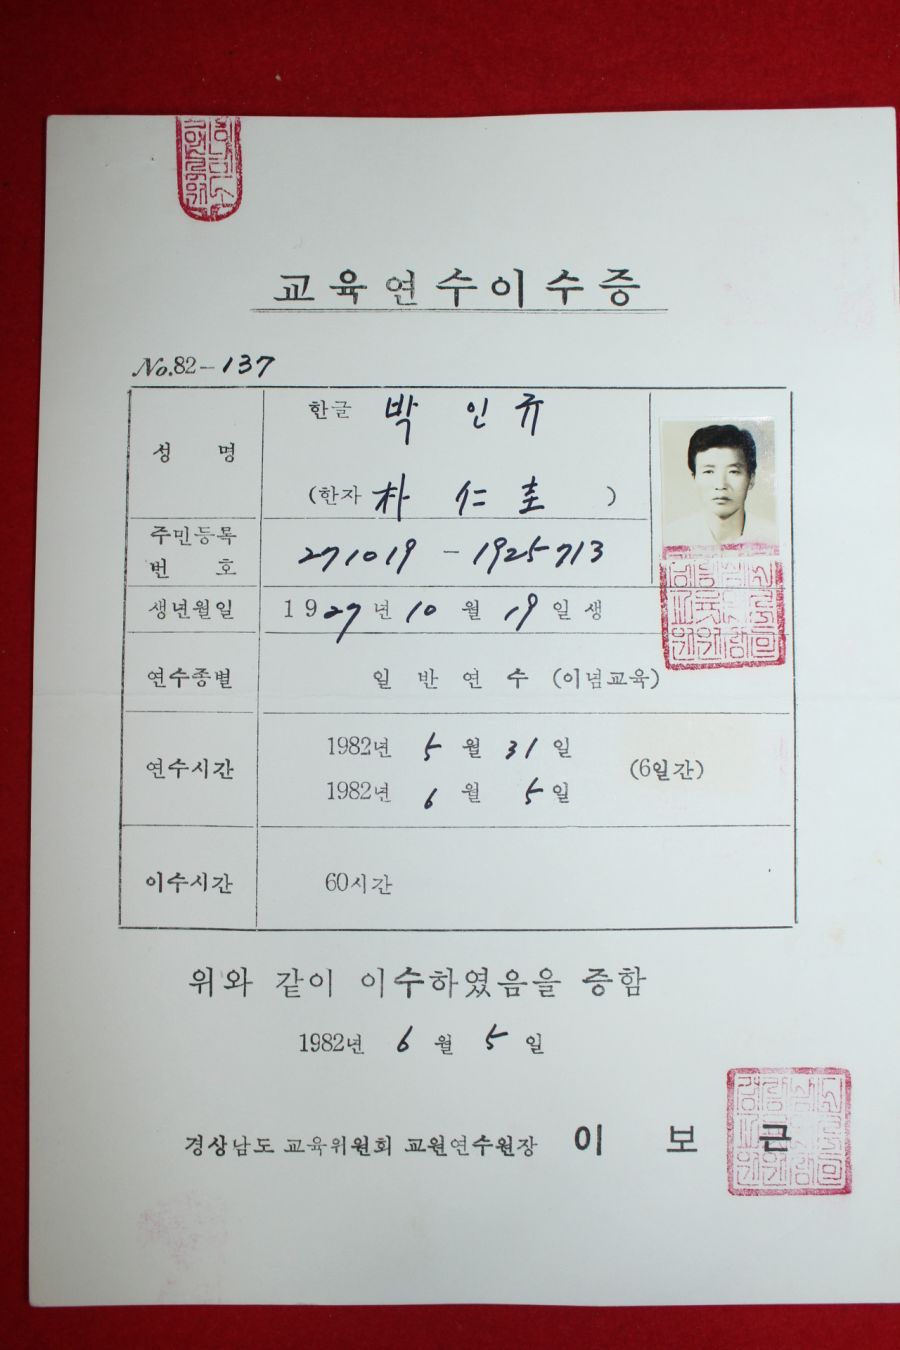 교육연수이수증
No.82-137
성 명
한글 박 인 규
(한자 朴 仁 圭 )
주민등록
번 호
271019-1925713
생년월일
1927년 10월 19일생
연수종별
일반연수 (이념교육)
연수시간
1982년 5월 31일
(6일간)
1982년 6월 5일
이수시간
60시간
위와 같이 이수하였음을 증함
1982년 6월 5일
경상남도 교육위원회 교원연수원장 이 보 근